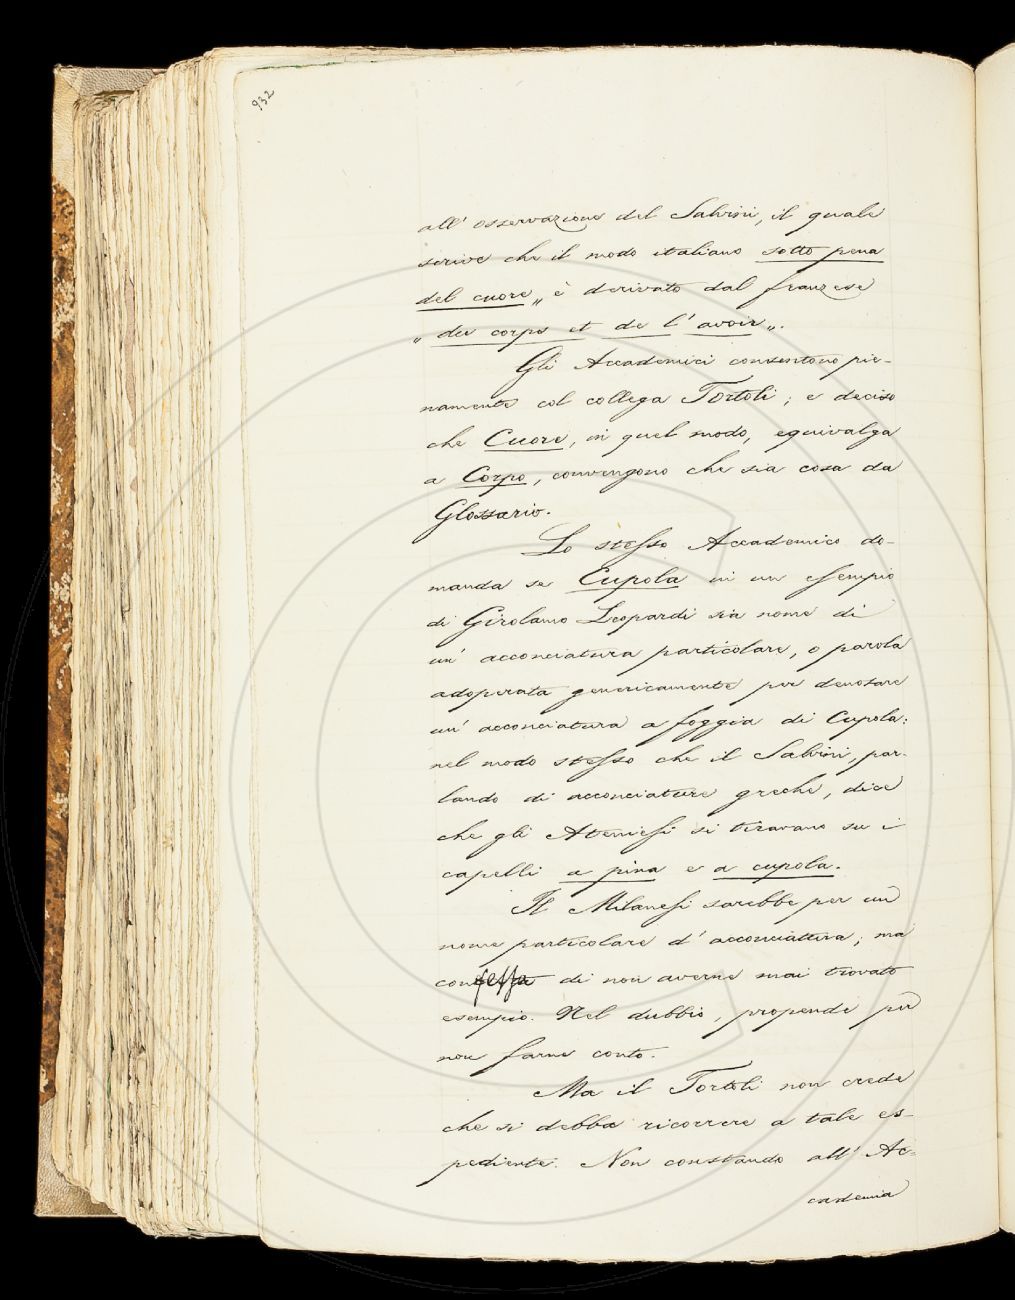 932
all' osservazione del Salvini, il quale
scrive che il modo italiano sotto pena
del cuore „ è derivato dal franzese
„ du corps et de l' avoir „.
Gli Accademici consentono pie-
namente col collega Tortoli; e deciso
che Cuore, in quel modo, equivalga
a Corpo, convengono che sia cosa da
Glossario.
Lo stesso Accademico do-
manda se Cupola in un esempio
di Girolamo Leopardi sia nome di
un' acconciatura particolare, o parola
adoperata genericamente per denotare
un' acconciatura a foggia di Cupola:
nel modo stesso che il Salvini, par-
lando di acconciature greche, dice
che gli Ateniesi si tiravano su i
capelli a pina e a cupola.
Il Milanesi sarebbe per un
nome particolare d' acconciattura; ma
confessa di non averne mai trovato
esempio. Nel dubbio, propende per
non farne conto.
Ma il Tortoli non crede
che si debba ricorrere a tale es-
pediente. Non constando all' Ac-
cademia